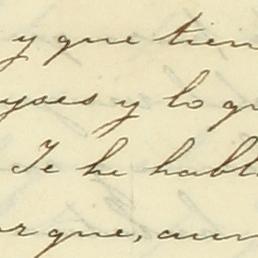 y que tien
yses y lo qu
Te he habl
rque, aun